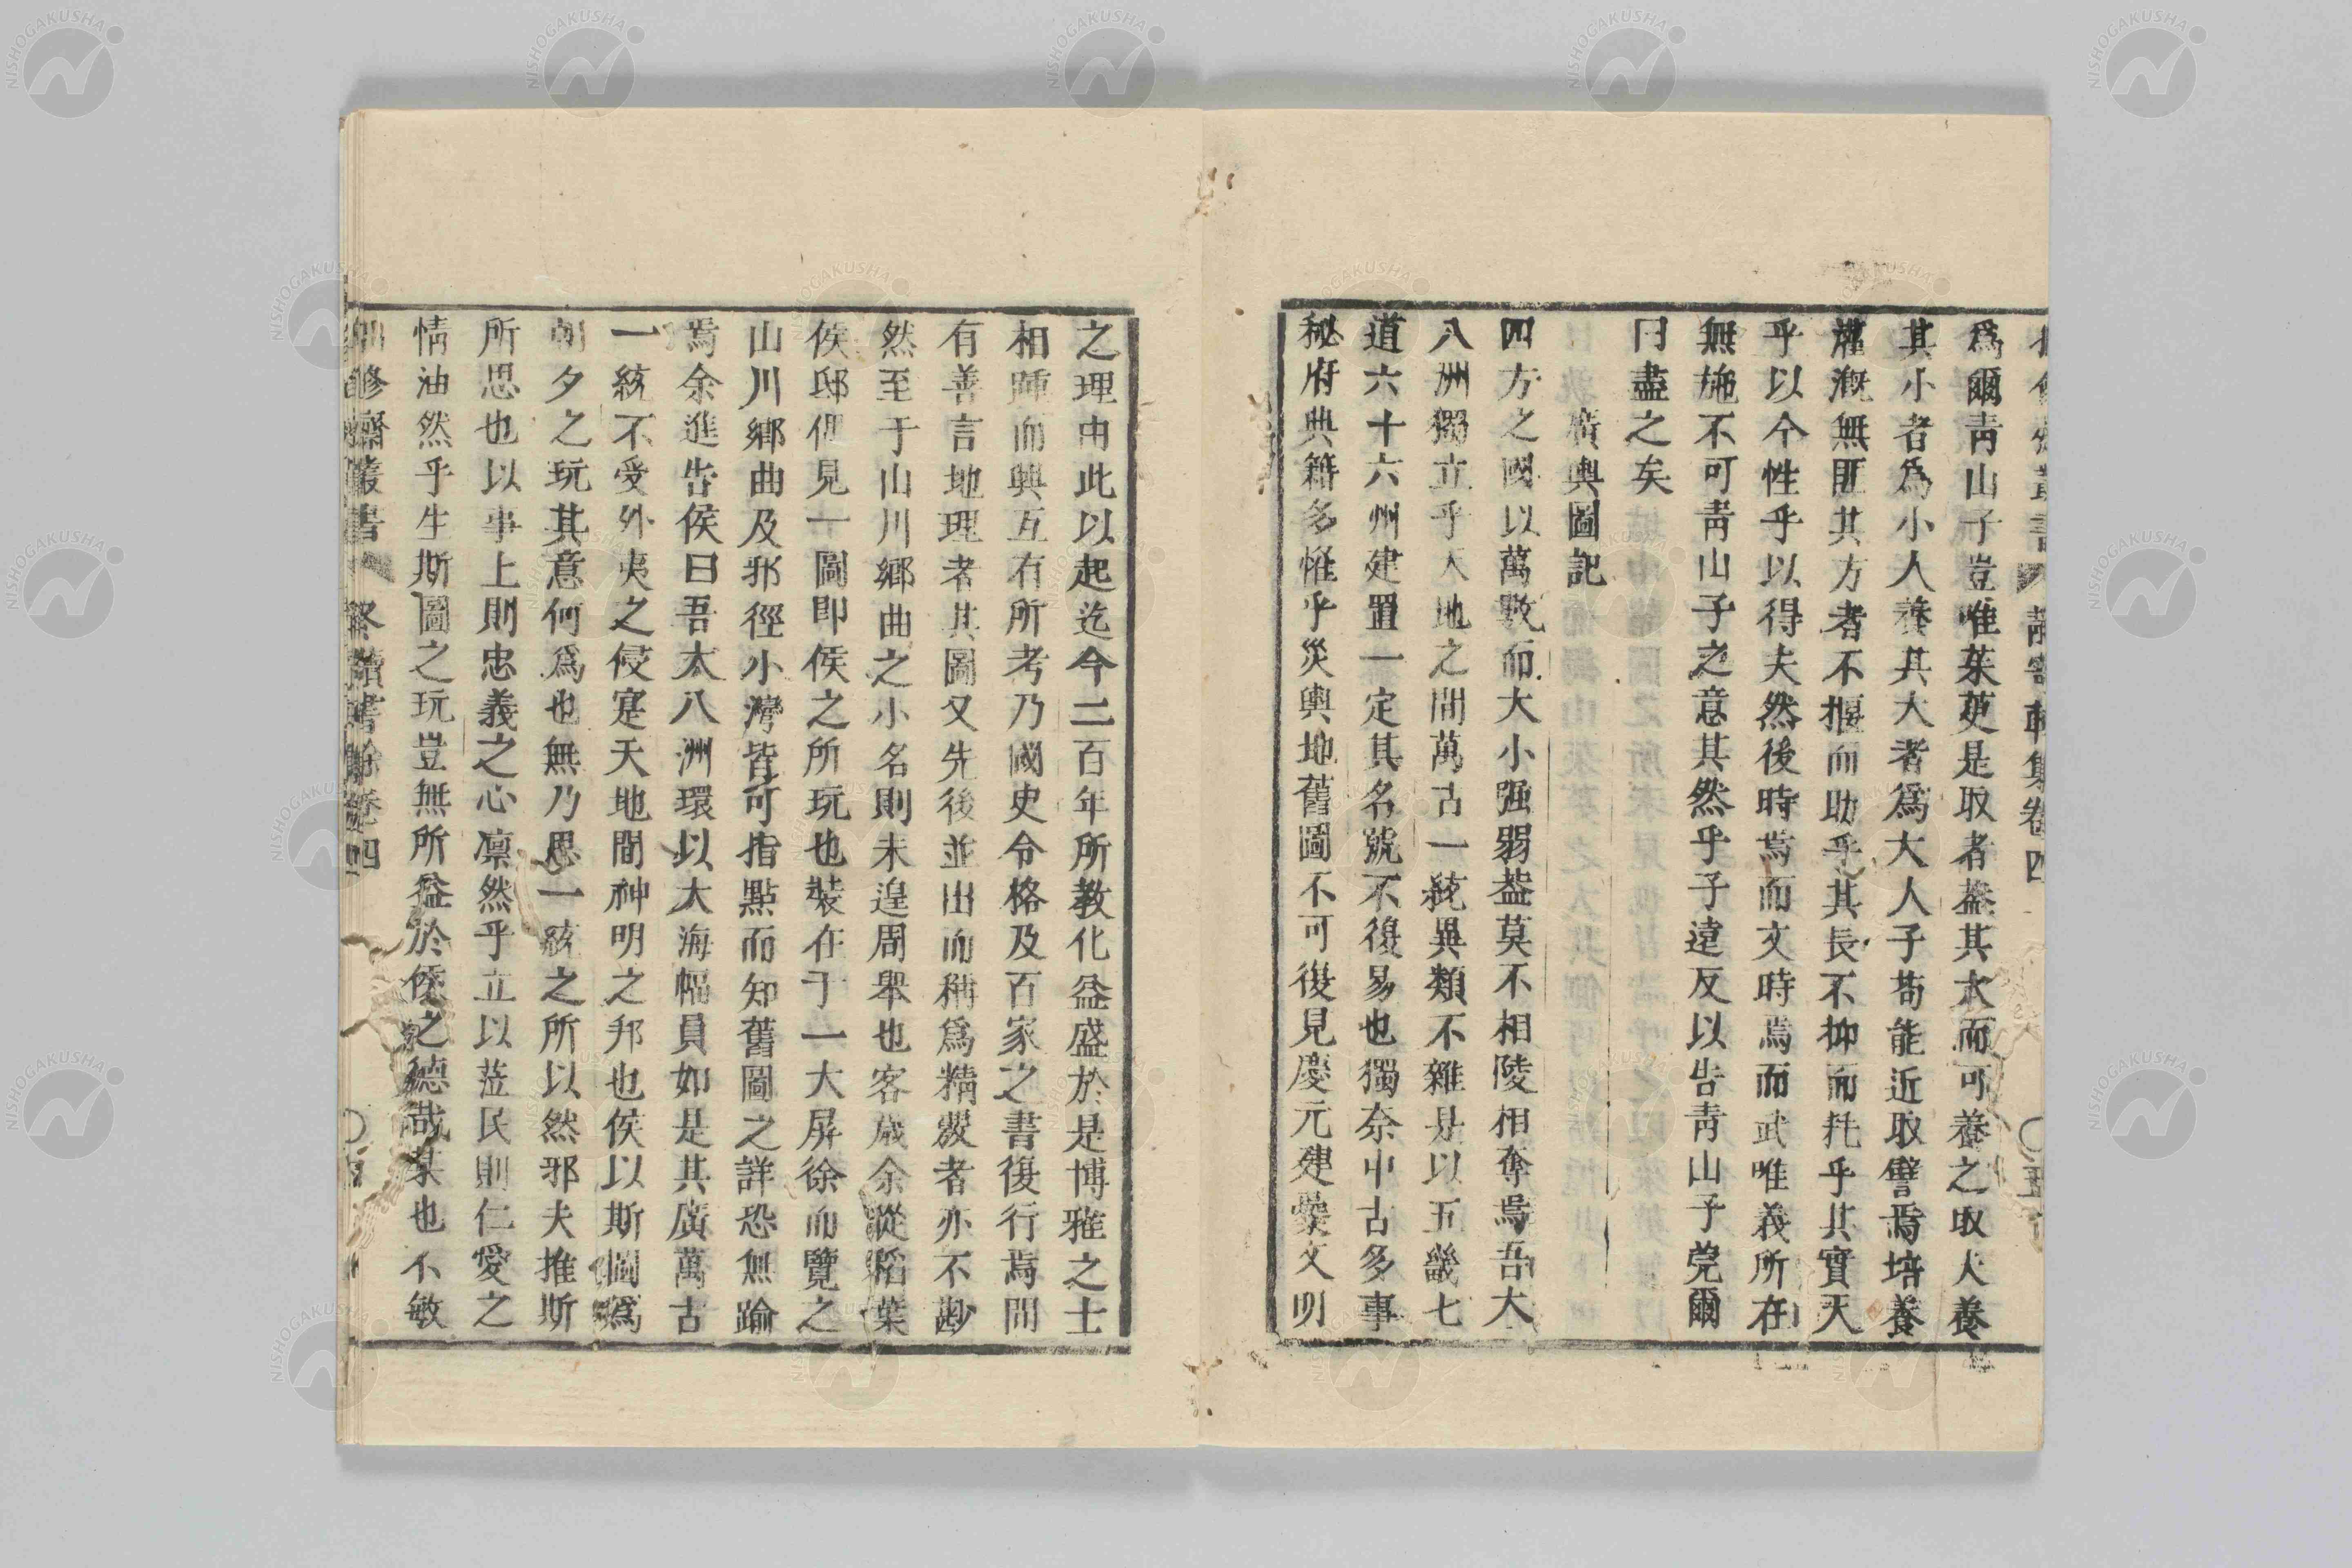 爲爾靑山子豈唯茱萸是取者葢其大而可養之取大養
其小者爲小人養其大者爲大人子苟能近取譬焉培養
灌漑無匪其方者不揠而助乎其長不抑而耗乎其實天
乎以令性乎以得夫然後時焉而文時焉而武唯義所在
無施不可靑山子之意其然乎子遠反以告靑山子莞爾
曰盡之矣
廣輿圖記
四方之國以萬數而大小强弱葢莫不相陵相奪焉吾大
八洲獨立乎天地之間萬古一統異類不雜是以五畿七
道六十六州建置一定其名號不復易也獨奈中古多事
秘府典籍多惟乎災輿地舊圖不可復見慶元建櫜文明
之理由此以起迄今二百年所敎化益盛於是博雅之士
相踵而興互有所考乃國史令格及百家之書復行焉間
有善言地理者其圖又先後並出而稱爲精覈者亦不尠
然至于山川鄕曲之小名則未遑周擧也客歲余從稻葉
侯邸俚見一圖即侯之所玩也裝在于一大屏徐而覽之
山川鄕曲及邪徑小灣皆可指點而知舊圖之詳恐無踰
焉余進告侯曰吾大八洲環以大海幅員如是其廣萬古
一統不受外夷之侵寔天地間神明之邦也侯以斯圖爲
朝夕之玩其意何爲也無乃思一統之所以然邪夫推斯
所思也以事上則忠義之心凛然乎立以蒞民則仁愛之
情油然乎生斯圖之玩豈無所益於侯之德哉某也不敏
修齋叢書 卷四